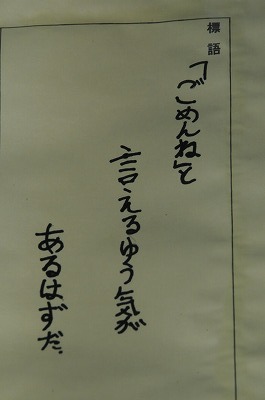 標語
「ごめんねと
言えるゆう気が
あるはずだ.